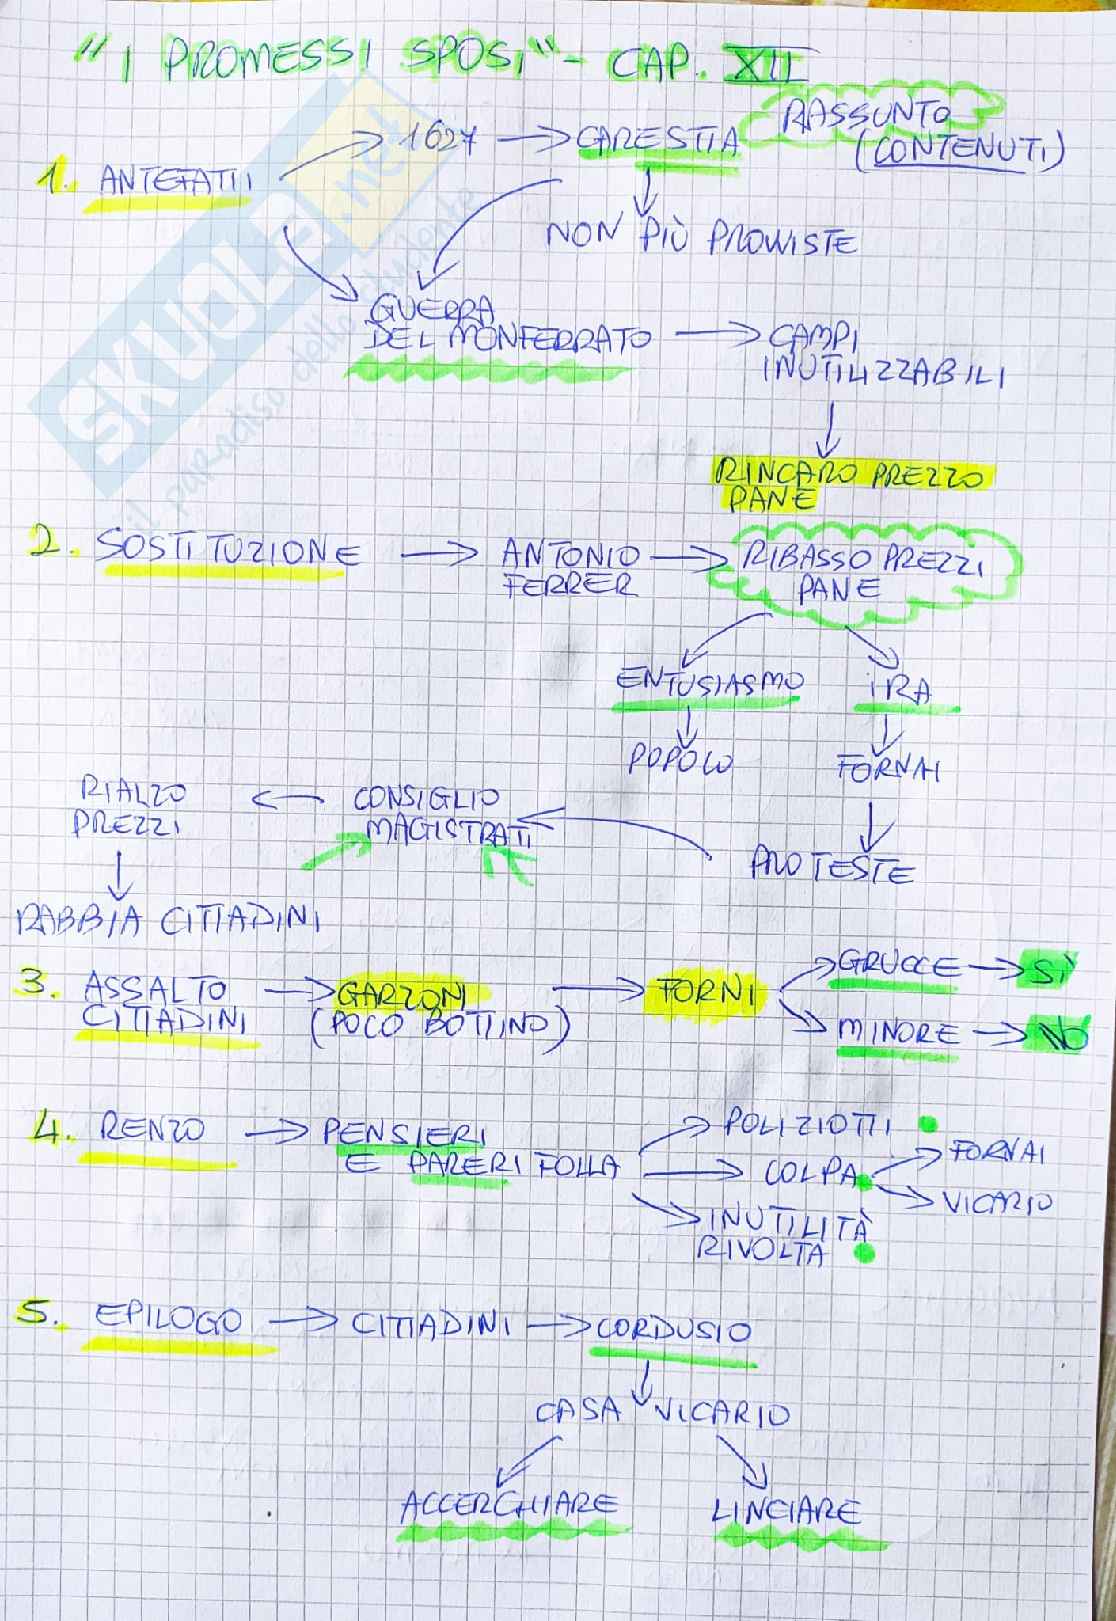 "I PROMESSI SPOSI" - CAP. XII
RASSUNTO
(CONTENUTI)
1. ANTEFATTI → 1627 → CARESTIA
NON PIÙ PROVVISTE
GUERRA
DEL MONFERRATO → CAMPI
INUTILIZZABILI
RINCARO PREZZO
PANE
2. SOSTITUZIONE → ANTONIO
FERRER → RIBASSO PREZZI
PANE
ENTUSIASMO IRA
POPOLO FORNAI
RIALZO
PREZZI ← CONSIGLIO
MAGISTRATI
PROTESTE
RABBIA CITTADINI
3. ASSALTO
CITTADINI → GARZONI
(POCO BOTTINO) → FORNI
GRUCCE → SÌ
MINORE → NO
4. RENZO → PENSIERI
E PARERI FOLLA
POLIZIOTTI
COLPA
FORNAI
VICARIO
INUTILITÀ
RIVOLTA
5. EPILOGO → CITTADINI → CORDUSIO
CASA VICARIO
ACCERCHIARE LINCIARE
SKUOLA.net
il paradiso dello studente